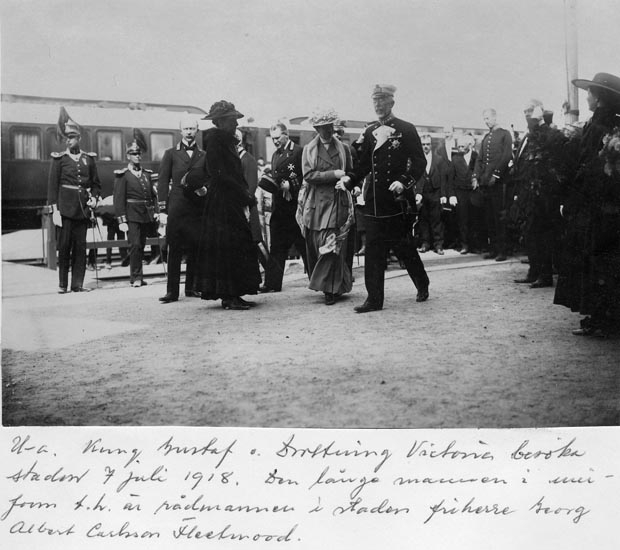 U-a. Kung Gustaf o. Drottning Victoria besöka
staden 7 juli 1918. Den långe mannen i uni-
form t.h. är rådmannen i staden friherre Georg
Albert Carlsson Fleetwood.